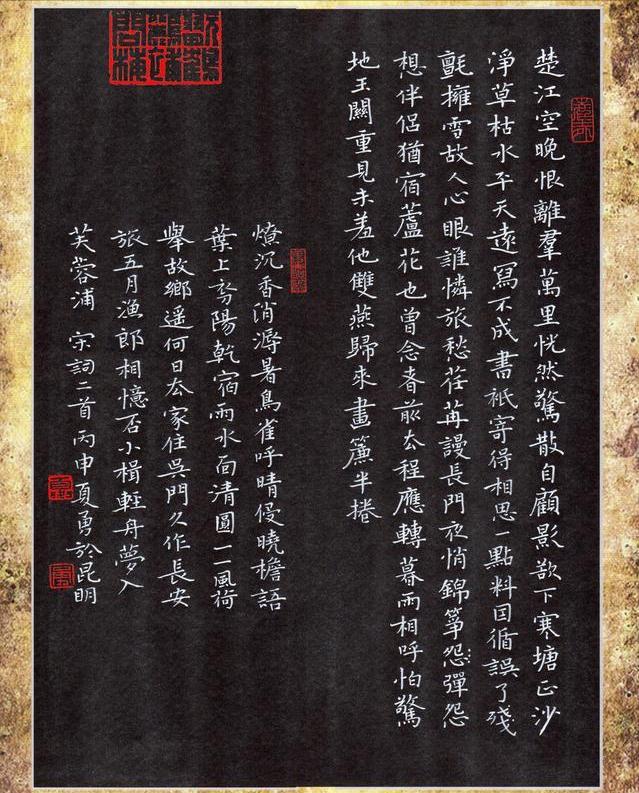 楚江空晚恨離羣萬里恍然驚散自顧影欲下寒塘正沙
淨草枯水平天遠寫不成書祇寄得相思一點料因循誤了殘
氈擁雪故人心眼誰憐旅愁荏苒謾長門夜悄錦箏怨彈怨
想伴侶猶宿蘆花也曾念春前去程應轉暮雨相呼怕驀
地玉關重見未羞他雙燕歸來畫簾半捲
燎沉香消溽暑鳥雀呼晴侵曉檐語
葉上初陽乾宿雨水面清圓一一風荷
舉故鄉遙何日去家住吳門久作長安
旅五月漁郎相憶否小楫輕舟夢入
芙蓉浦 宋詞二首丙申夏勇於昆明